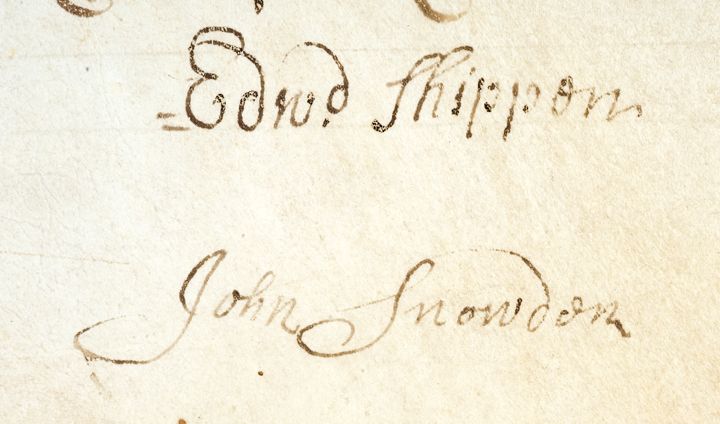 Edwd Shippen
John Snowden